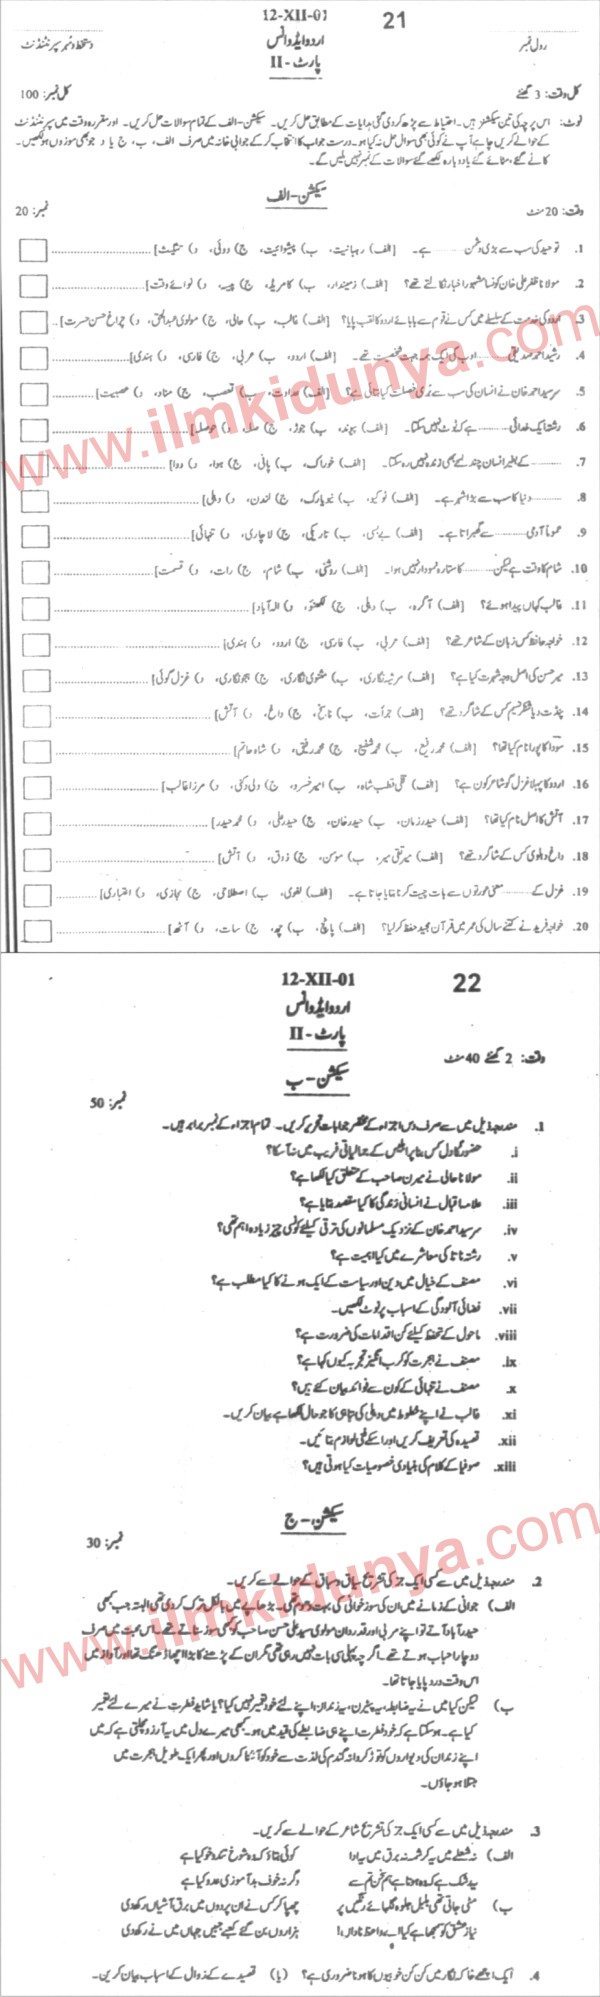 12-XII-01 21
رول نمبر اردو ایڈوانس دستخط و مہر سپرنٹنڈنٹ
پارٹ - II
کل وقت: 3 گھنٹے کل نمبر: 100
نوٹ: اس پرچہ کی تین سیکشنز ہیں۔ احتیاط سے پڑھ کر دی گئی ہدایات کے مطابق حل کریں۔ سیکشن-الف کے تمام سوالات حل کریں۔ اور مقررہ وقت میں سپرنٹنڈنٹ
کے حوالے کریں چاہے آپ نے کوئی بھی سوال حل نہ کیا ہو۔ درست جواب کا انتخاب کر کے جوابی خانہ میں صرف الف، ب، ج یا د جو بھی موزوں ہو لکھیں۔
کاٹے گئے، مٹائے گئے یا دوبارہ لکھے گئے سوالات کے نمبر نہیں ملیں گے۔
سیکشن-الف
وقت: 20 منٹ نمبر: 20
1. توحید کی سب سے بڑی دشمن ........ ہے۔ [الف) رہبانیت، ب) پیشوائیت، ج) دوئی، د) تثلیث]
2. مولانا ظفر علی خان کونسا مشہور اخبار نکالتے تھے؟ [الف) زمیندار، ب) کامریڈ، ج) پیسہ، د) نوائے وقت]
3. اردو کی خدمت کے سلسلے میں کس نے قوم سے بابائے اردو کا لقب پایا؟ [الف) غالب، ب) حالی، ج) مولوی عبدالحق، د) چراغ حسن حسرت]
4. رشید احمد صدیقی ........ ادب کی ایک ہمہ جہت شخصیت تھے۔ [الف) اردو، ب) عربی، ج) فارسی، د) ہندی]
5. سرسید احمد خان نے انسان کی سب سے بری خصلت کیا بتائی ہے؟ [الف) عداوت، ب) تعصب، ج) عناد، د) عصبیت]
6. رشتہ ایک خدائی ........ ہے کہ ٹوٹ نہیں سکتا۔ [الف) پیوند، ب) جوڑ، ج) صلہ، د) حوصلہ]
7. ........ کے بغیر انسان چند لمحے بھی زندہ نہیں رہ سکتا۔ [الف) خوراک، ب) پانی، ج) ہوا، د) دوا]
8. ........ دنیا کا سب سے بڑا شہر ہے۔ [الف) ٹوکیو، ب) نیویارک، ج) لندن، د) دہلی]
9. عموماً آدمی ........ سے گھبراتا ہے۔ [الف) بے بسی، ب) تاریکی، ج) لاچاری، د) تنہائی]
10. شام کا وقت ہے لیکن ........ کا ستارہ نمودار نہیں ہوا۔ [الف) روشنی، ب) شام، ج) رات، د) قسمت]
11. غالب کہاں پیدا ہوئے؟ [الف) آگرہ، ب) دہلی، ج) لکھنؤ، د) الہ آباد]
12. خواجہ حافظ کس زبان کے شاعر تھے؟ [الف) عربی، ب) فارسی، ج) اردو، د) ہندی]
13. میر حسن کی اصل وجہ شہرت کیا ہے؟ [الف) مرثیہ نگاری، ب) مثنوی نگاری، ج) ہجو نگاری، د) غزل گوئی]
14. پنڈت دیا شنکر نسیم کس کے شاگرد تھے؟ [الف) جرأت، ب) ناسخ، ج) داغ، د) آتش]
15. سودا کا پورا نام کیا تھا؟ [الف) محمد رفیع، ب) محمد شفیع، ج) محمد رفیق، د) شاہ حاتم]
16. اردو کا پہلا غزل گو شاعر کون ہے؟ [الف) قلی قطب شاہ، ب) امیر خسرو، ج) ولی دکنی، د) مرزا غالب]
17. آتش کا اصل نام کیا تھا؟ [الف) حیدر زمان، ب) حیدر خان، ج) حیدر علی، د) محمد حیدر]
18. داغ دہلوی کس کے شاگرد تھے؟ [الف) میر تقی میر، ب) مومن، ج) ذوق، د) آتش]
19. غزل کے ........ معنی عورتوں سے بات چیت کرنا بتایا جاتا ہے۔ [الف) لغوی، ب) اصطلاحی، ج) مجازی، د) اعتباری]
20. خواجہ فرید نے کتنے سال کی عمر میں قرآن مجید حفظ کر لیا؟ [الف) پانچ، ب) چھ، ج) سات، د) آٹھ]
12-XII-01 22
اردو ایڈوانس
پارٹ - II
وقت: 2 گھنٹے 40 منٹ
سیکشن - ب
نمبر: 50
1. مندرجہ ذیل میں سے صرف دس اجزاء کے مختصر جوابات تحریر کریں۔ تمام اجزاء کے نمبر برابر ہیں۔
i. حضورؐ کا دل کس بنا پر ابلیس کے جمالیاتی فریب میں نہ آ سکا؟
ii. مولانا حالی نے میرن صاحب کے متعلق کیا لکھا ہے؟
iii. علامہ اقبال نے انسانی زندگی کا کیا مقصد بتایا ہے؟
iv. سرسید احمد خان کے نزدیک مسلمانوں کی ترقی کیلئے کونسی چیز زیادہ اہم تھی؟
v. رشتہ ناتا کی معاشرے میں کیا اہمیت ہے؟
vi. مصنف کے خیال میں دین اور سیاست کے ایک ہونے کا کیا مطلب ہے؟
vii. فضائی آلودگی کے اسباب پر نوٹ لکھیں۔
viii. ماحول کے تحفظ کیلئے کن اقدامات کی ضرورت ہے؟
ix. مصنف نے ہجرت کو کرب انگیز تجربہ کیوں کہا ہے؟
x. مصنف نے تنہائی کے کون سے فوائد بیان کئے ہیں؟
xi. غالب نے اپنے خطوط میں دہلی کی تباہی کا جو حال لکھا ہے بیان کریں۔
xii. قصیدہ کی تعریف کریں اور اسکے فنی لوازم بتائیں۔
xiii. صوفیا کے کلام کی بنیادی خصوصیات کیا ہوتی ہیں؟
سیکشن - ج
نمبر: 30
2. مندرجہ ذیل میں سے کسی ایک جز کی تشریح سیاق و سباق کے حوالے سے کریں۔
الف) جوانی کے زمانے میں ان کی سوز خوانی کی بہت دھوم تھی۔ بڑھاپے میں بالکل ترک کر دی تھی البتہ جب کبھی
حیدر آباد آتے تو اپنے مربی اور قدردان مولوی سید علی حسن صاحب کو کبھی سوز سناتے تھے۔ اس صحبت میں صرف
دو چار احباب ہوتے تھے۔ اگرچہ پہلی سی بات نہیں رہی تھی مگر ان کے پڑھنے کا بڑا اچھا ڈھنگ تھا اور آواز میں
اس وقت درد پایا جاتا تھا۔
ب) لیکن کیا میں نے یہ ضابطہ، یہ پیٹرن، یہ زندان، اپنے لئے خود تعمیر نہیں کیا؟ یا شاید فطرت نے میرے لئے تعمیر
کیا ہے۔ ہو سکتا ہے کہ خود فطرت اپنے ہی ضابطے کی قید میں ہو۔ کبھی میرے دل میں یہ آرزو مچلتی ہے کہ میں
اپنے زندان کی دیواروں کو توڑ کر دانہ گندم کی لذت سے خود کو آشنا کروں اور پھر ایک طویل ہجرت میں
مبتلا ہو جاؤں۔
3. مندرجہ ذیل میں سے کسی ایک جز کی تشریح شاعر کے حوالے سے کریں۔
الف) نہ شعلے میں یہ کرشمہ نہ برق میں یہ ادا کوئی بتاؤ کہ وہ شوخ تند خو کیا ہے
یہ رشک ہے کہ وہ ہوتا ہے ہم سخن تم سے وگرنہ خوف بد آموزی عدو کیا ہے
ب) مٹی جاتی تھی بلبل جلوہ گلہائے رنگیں پر چھپا کر کس نے ان پردوں میں برق آشیاں رکھ دی
نیاز عشق کو سمجھا ہے کیا اے واعظ ناداں! ہزاروں بن گئے کعبے جبیں جہاں میں نے رکھ دی
4. ایک اچھے خاکہ نگار میں کن کن خوبیوں کا ہونا ضروری ہے؟ (یا) قصیدے کے زوال کے اسباب بیان کریں۔
www.ilmkidunya.com
www.ilmkidunya.com